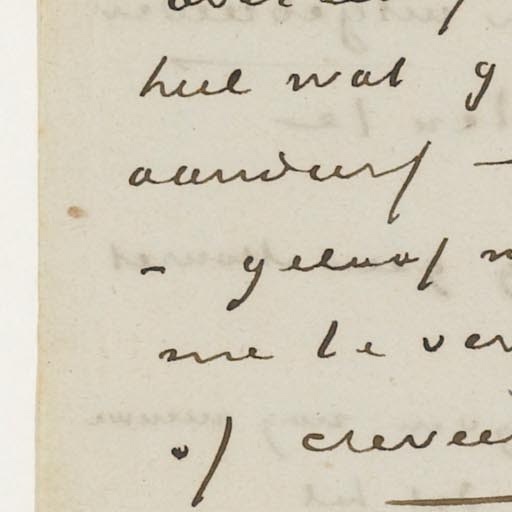 heel wat g
aandurf —
– geloof m
me te ver
of creveer